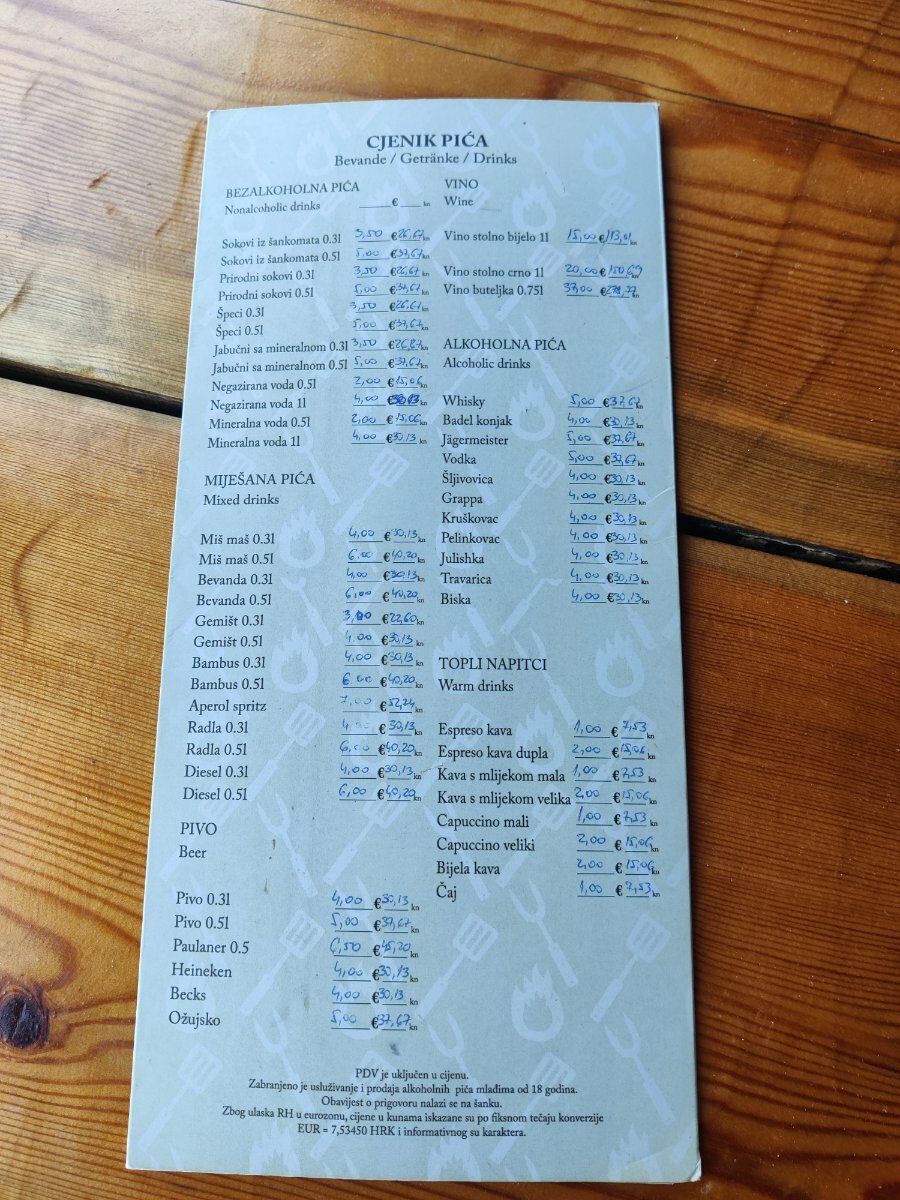 CJENIK PIĆA
Bevande / Getränke / Drinks
BEZALKOHOLNA PIĆA
Nonalcoholic drinks ____€____kn
Sokovi iz šankomata 0.3l 3,50 € 26,67 kn
Sokovi iz šankomata 0.5l 5,00 € 37,67 kn
Prirodni sokovi 0.3l 3,50 € 26,67 kn
Prirodni sokovi 0.5l 5,00 € 37,67 kn
Špeci 0.3l 3,50 € 26,67 kn
Špeci 0.5l 5,00 € 37,67 kn
Jabučni sa mineralnom 0.3l 3,50 € 26,87 kn
Jabučni sa mineralnom 0.5l 5,00 € 37,67 kn
Negazirana voda 0.5l 2,00 € 15,06 kn
Negazirana voda 1l 4,00 € 30,13 kn
Mineralna voda 0.5l 2,00 € 15,06 kn
Mineralna voda 1l 4,00 € 30,13 kn
MIJEŠANA PIĆA
Mixed drinks
Miš maš 0.3l 4,00 € 30,13 kn
Miš maš 0.5l 6,00 € 40,20 kn
Bevanda 0.3l 4,00 € 30,13 kn
Bevanda 0.5l 6,00 € 40,20 kn
Gemišt 0.3l 3,00 € 22,60 kn
Gemišt 0.5l 4,00 € 30,13 kn
Bambus 0.3l 4,00 € 30,13 kn
Bambus 0.5l 6,00 € 40,20 kn
Aperol spritz 7,00 € 52,74 kn
Radla 0.3l 4,00 € 30,13 kn
Radla 0.5l 6,00 € 40,20 kn
Diesel 0.3l 4,00 € 30,13 kn
Diesel 0.5l 6,00 € 40,20 kn
PIVO
Beer
Pivo 0.3l 4,00 € 30,13 kn
Pivo 0.5l 5,00 € 37,67 kn
Paulaner 0.5 6,50 € 45,20 kn
Heineken 4,00 € 30,13 kn
Becks 4,00 € 30,13 kn
Ožujsko 5,00 € 37,67 kn
VINO
Wine
Vino stolno bijelo 1l 15,00 € 113,01 kn
Vino stolno crno 1l 20,00 € 150,69
Vino buteljka 0.75l 37,00 € 278,77 kn
ALKOHOLNA PIĆA
Alcoholic drinks
Whisky 5,00 € 37,67 kn
Badel konjak 4,00 € 30,13 kn
Jägermeister 5,00 € 37,67 kn
Vodka 5,00 € 37,67 kn
Šljivovica 4,00 € 30,13 kn
Grappa 4,00 € 30,13 kn
Kruškovac 4,00 € 30,13 kn
Pelinkovac 4,00 € 30,13 kn
Julishka 4,00 € 30,13 kn
Travarica 4,00 € 30,13 kn
Biska 4,00 € 30,13 kn
TOPLI NAPITCI
Warm drinks
Espreso kava 1,00 € 7,53 kn
Espreso kava dupla 2,00 € 15,06 kn
Kava s mlijekom mala 1,00 € 7,53 kn
Kava s mlijekom velika 2,00 € 15,06 kn
Capuccino mali 1,00 € 7,53 kn
Capuccino veliki 2,00 € 15,06 kn
Bijela kava 2,00 € 15,06 kn
Čaj 1,00 € 7,53 kn
PDV je uključen u cijenu.
Zabranjeno je usluživanje i prodaja alkoholnih pića mlađima od 18 godina.
Obavijest o prigovoru nalazi se na šanku.
Zbog ulaska RH u eurozonu, cijene u kunama iskazane su po fiksnom tečaju konverzije
EUR = 7,53450 HRK i informativnog su karaktera.